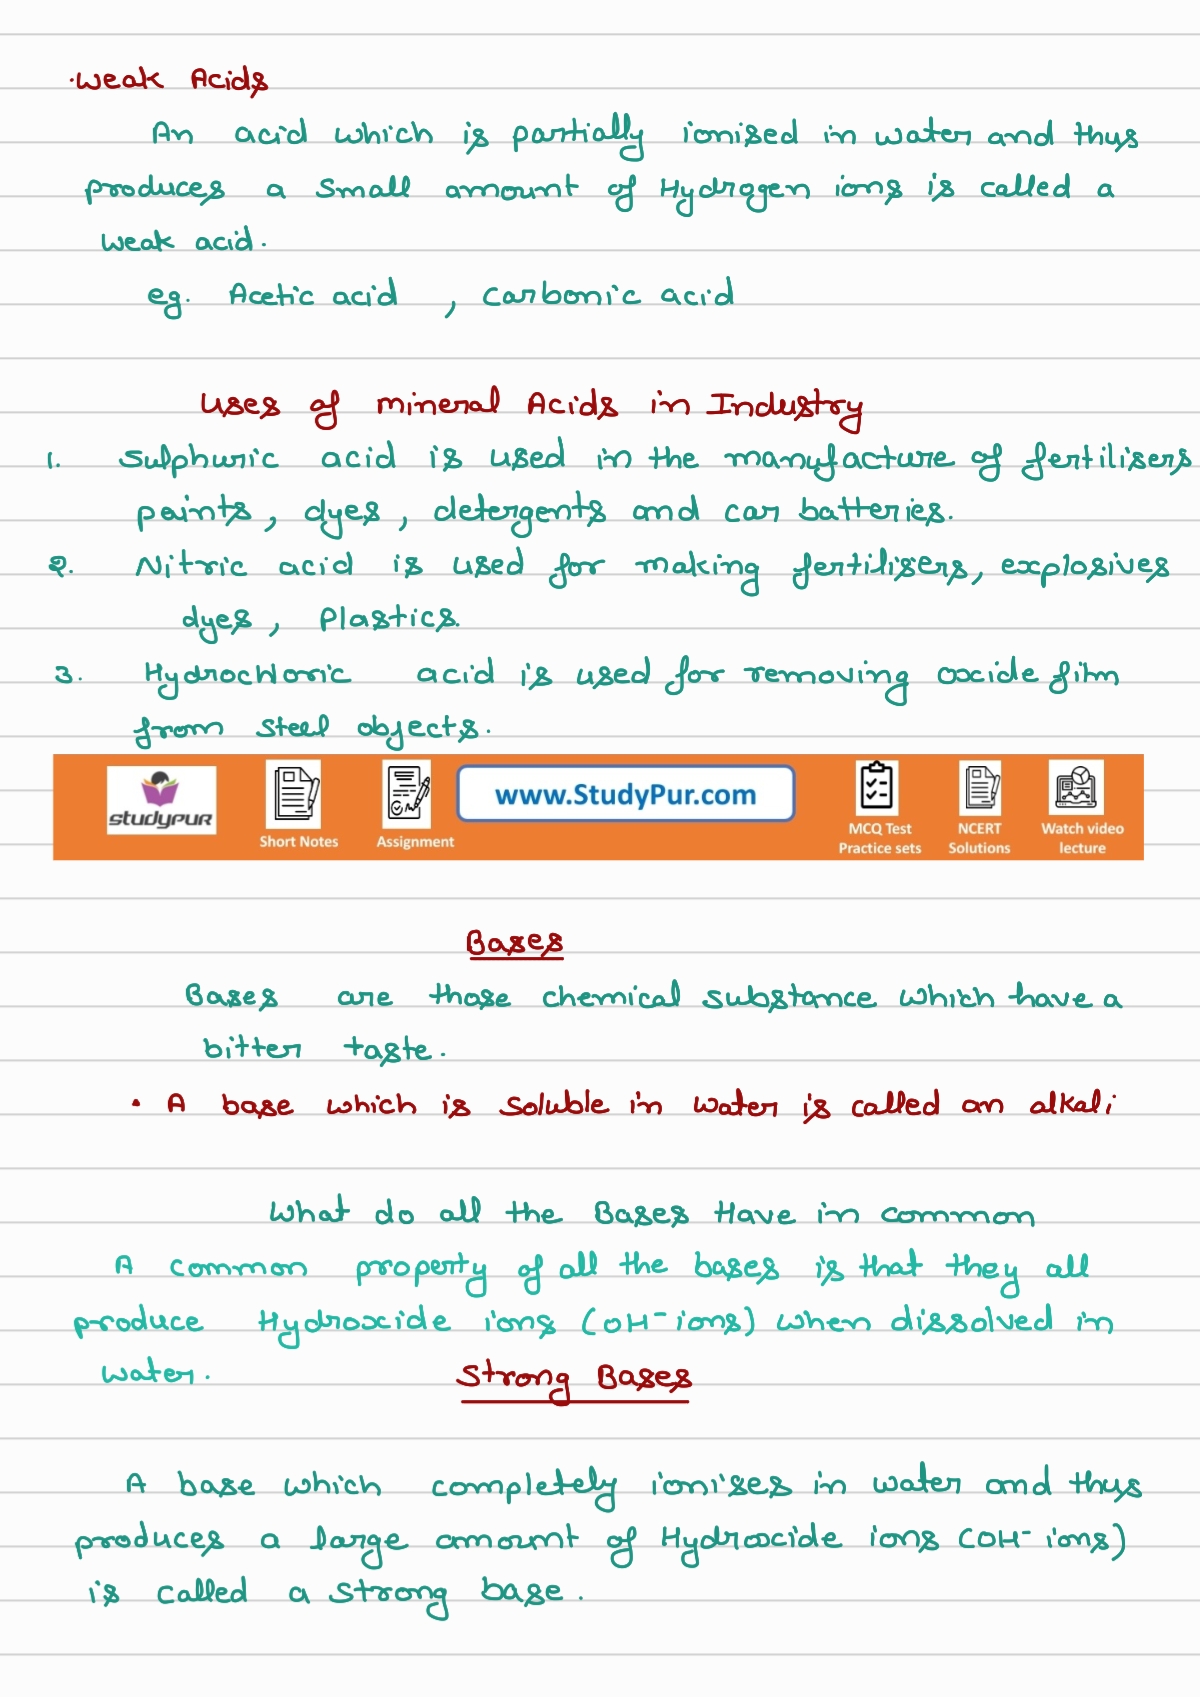 ·Weak Acids
An acid which is partially ionised in water and thus
produces a small amount of Hydrogen ions is called a
weak acid.
eg. Acetic acid , carbonic acid
Uses of mineral Acids in Industry
1. Sulphuric acid is used in the manufacture of fertilisers
paints, dyes, detergents and car batteries.
2. Nitric acid is used for making fertilisers, explosives
dyes, Plastics.
3. Hydrochloric acid is used for removing oxide film
from steel objects.
studypur
Short Notes
Assignment
www.StudyPur.com
MCQ Test
Practice sets
NCERT
Solutions
Watch video
lecture
Bases
Bases are those chemical substance which have a
bitter taste.
• A base which is soluble in water is called an alkali
What do all the Bases Have in common
A common property of all the bases is that they all
produce Hydroxide ions (OH⁻ ions) when dissolved in
water.
Strong Bases
A base which completely ionises in water and thus
produces a large amount of Hydroxide ions (OH⁻ ions)
is called a strong base.